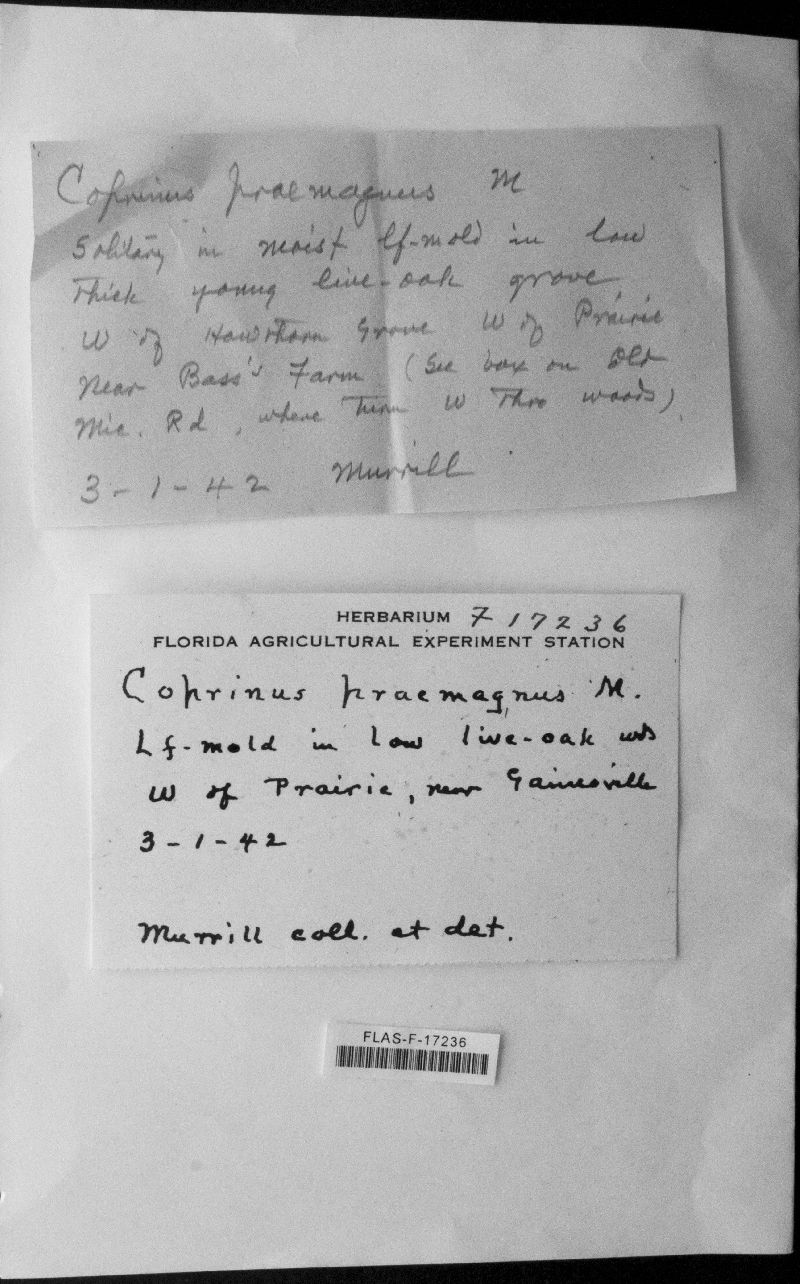 Coprinus praemagnus M
Solitary in moist lf-mold in low
thick young live-oak grove
W of Hawthorn Grove W of Prairie
near Bass's Farm (See box on Old
Mic. Rd, where turn W thro woods)
3-1-42 Murrill
HERBARIUM F 17236
FLORIDA AGRICULTURAL EXPERIMENT STATION
Coprinus praemagnus M.
Lf-mold in low live-oak wds
W of Prairie, near Gainesville
3-1-42
Murrill coll. et det.
FLAS-F-17236